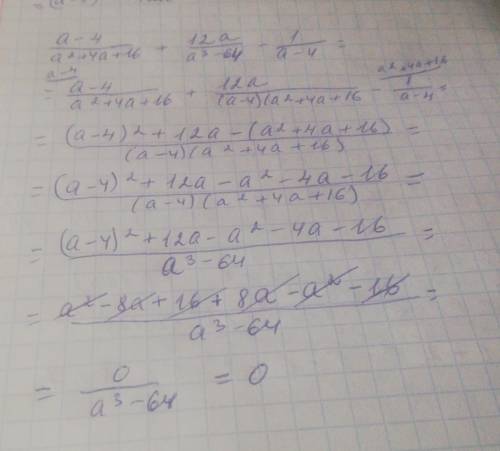 (a-4)
a-4/a²+4a+16 + 12a/a³-64 - 1/a-4 =
= a-4\ a-4/a²+4a+16 + 12a/(a-4)(a²+4a+16 - a²+4a+16\ 1/a-4 =
= (a-4)²+12a-(a²+4a+16)/(a-4)(a²+4a+16) =
= (a-4)²+12a-a²-4a-16/(a-4)(a²+4a+16) =
= (a-4)²+12a-a²-4a-16/a³-64 =
= a²-8a+16+8a-a²-16/a³-64 =
= 0/a³-64 = 0